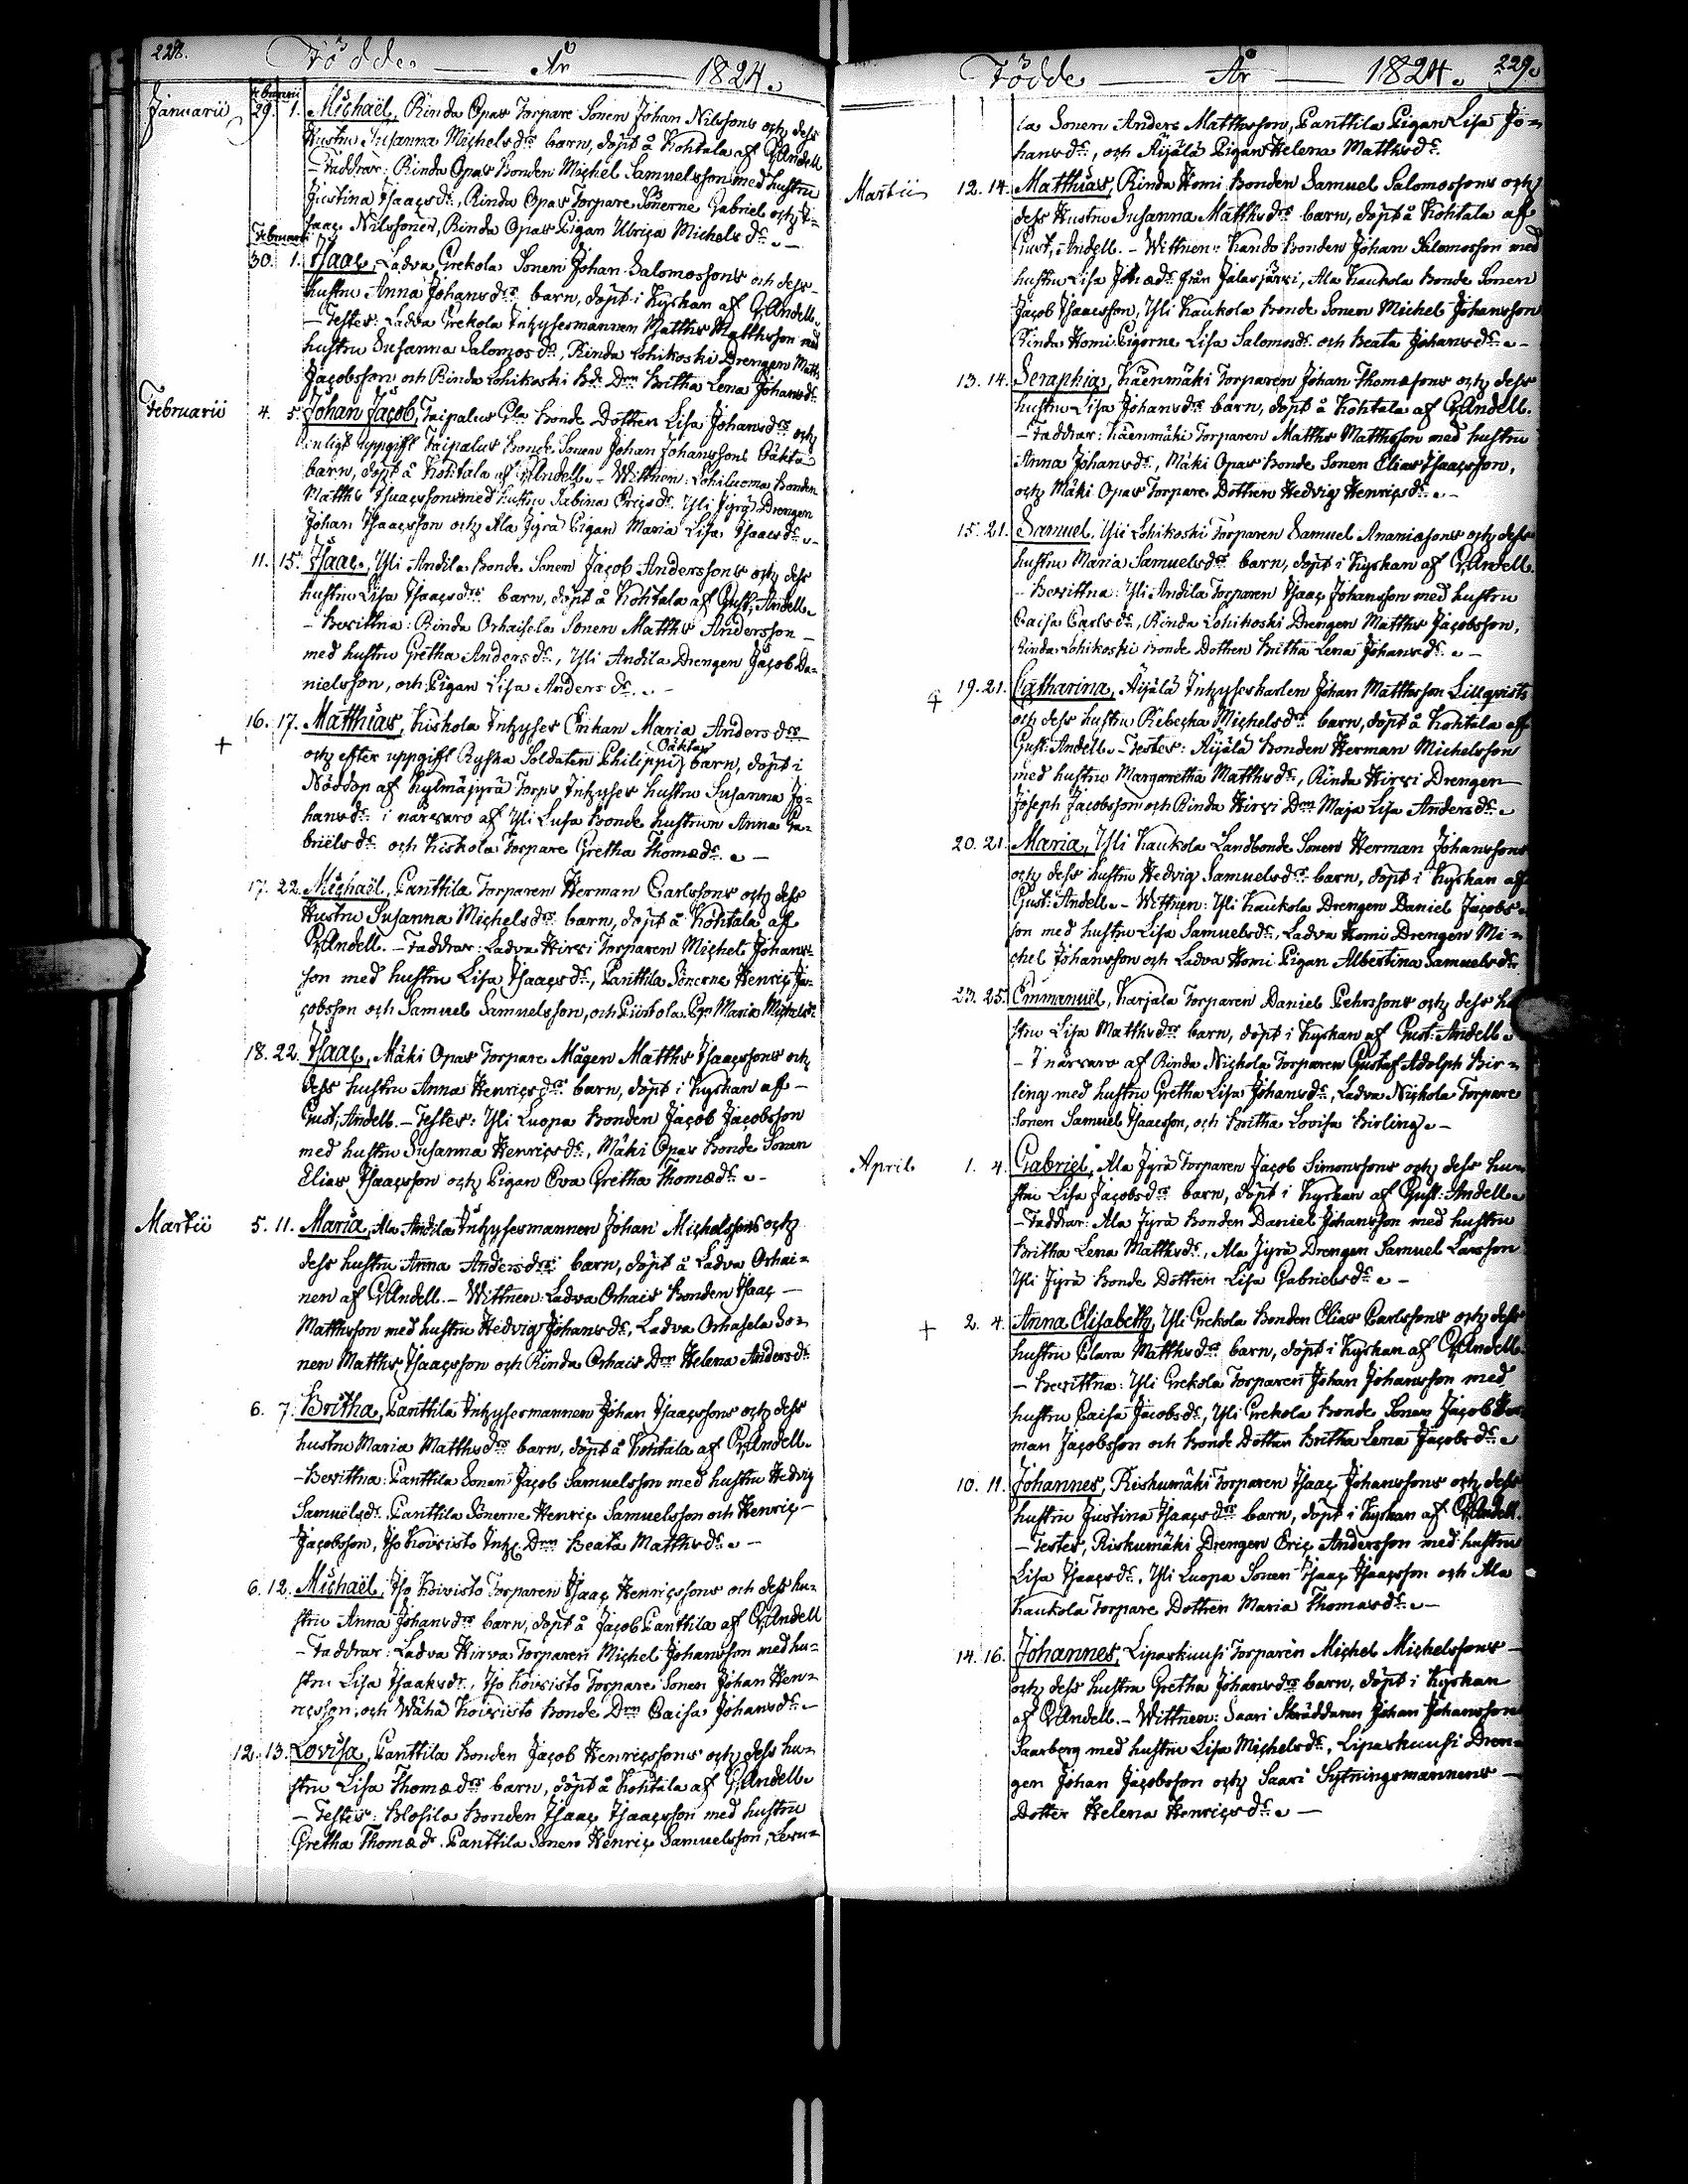 228.
Födde År 1824.
Februarii
Januarii 29. 1. Michaël, Rinda Opas Torpare Sonen Johan Nilssons och dess
Hustru Susanna Michels drs barn, döpt å Kohtala af G. Andell
- Faddrar: Rinda Opas Bonden Michel Samuelsson med hustru
Justina Isaacs dr, Rinda Opas Torpare Sönerne Gabriel och I-
saac Nilssöner, Rinda Opas Pigan Ulrica Michels dr. -
Februarii
30. 1. Isaac, Ladva Grekola Sonen Johan Salomossons och dess
hustru Anna Johans drs barn, döpt i Kyrkan af G. Andell.
- Testes: Ladva Grekola Inhysesmannen Matths Matthsson med
hustru Susanna Salomos dr, Rinda Lohikoski Drengen Matths
Jacobsson och Rinda Lohikoski Bde Drn Britha Lena Johans dr.
Februarii 4. 5. Johan Jacob, Taipalus Gla Bonde Dottren Lisa Johans drs och
enligt uppgift Taipalus Bonde Sonen Johan Johanssons Oäkta
barn, döpt å Kohtala af G. Andell. - Wittnen: Lohiluoma Bonden
Matths Isaacsson med hustru Sabina Erics dr. Yli Jyrä Drengen
Johan Isaacsson och Ala Jyrä Pigan Maria Lisa Isaacs dr. -
11. 15. Isaac, Yli Andila Bonde Sonen Jacob Anderssons och dess
hustru Lisa Isaacs drs barn, döpt å Kohtala af Gust: Andell.
- Bevittna: Rinda Orhaisela Sonen Matths Andersson -
med hustru Gretha Anders dr, Yli Andila Drengen Jacob Da-
nielsson, och Pigan Lisa Anders dr. -
+ 16. 17. Matthias, Kiskola Inhyses Enkan Maria Anders drs
och efter uppgift Ryska Soldaten Philippi Oäkta barn, döpt i
Nöddop af Kylmäjyrä Torps Inhyses hustru Susanna Jo-
hans dr i närvaro af Yli Lusa Bonde hustrun Anna Ga-
briels dr och Kiskola Torpare Gretha Thomæ dr. -
17. 22. Michaël, Panttila Torparen Herman Carlssons och dess
Hustru Susanna Michels drs barn, döpt å Kohtala af
G. Andell. - Faddrar: Ladva Hirvi Torparen Michel Johans-
son med hustru Lisa Isaacs dr, Panttila Sönerne Henric Ja-
cobsson och Samuel Samuelsson, och Pgn Maria Michels dr
18. 22. Isaac, Mäki Opas Torpare Mågen Matths Isaacssons och
dess hustru Anna Henrics drs barn, döpt i Kyrkan af -
Gust. Andell. - Testes: Yli Luopa Bonden Jacob Jacobsson
med hustru Susanna Henrics dr, Mäki Opas Bonde Sonen
Elias Isaacsson och Pigan Eva Gretha Thomæ dr. -
Martii 5. 11. Maria, Ala Andila Inhysesmannen Johan Michelssons och
dess hustru Anna Anders drs barn, döpt å Ladva Orhai-
nen af G. Andell. - Wittnen: Ladva Orhais Bonden Isaac -
Matthsson med hustru Hedvig Johans dr, Ladva Orhasela So-
nen Matths Isaacsson och Rinda Orhais Drn Helena Anders dr
6. 7. Britha, Panttila Inhysesmannen Johan Isaacssons och dess
hustru Maria Matths drs barn, döpt å Kohtala af G. Andell.
- Bevittna: Panttila Sonen Jacob Samuelsson med hustru Hedvig
Samuels dr. Panttila Sönerne Henric Samuelsson och Henric -
Jacobsson, Iso Koivisto Inhs Drn Beata Matths dr. -
6. 12. Michaël, Iso Koivisto Torparen Isaac Henricssons och dess hu-
stru Anna Johans drs barn, döpt å Jacob Panttila af G. Andell
- Faddrar: Ladva Hirva Torparen Michel Johansson med hu-
stru Lisa Isaaks dr, Iso Koivisto Torpare Sonen Johan Hen-
ricsson, och Wähä Koivisto Bonde Drn Caisa Johans dr. -
12. 13. Lovisa, Panttila Bonden Jacob Henricssons och dess hu-
stru Lisa Thomæ drs barn, döpt å Kohtala af G. Andell.
- Testes: Blosila Bonden Isaac Isaacsson med hustru
Gretha Thomæ dr. Panttila Sonen Henric Samuelsson, Leva-
Födde År 1824. 229.
la Sonen Anders Matthsson, Panttila Pigan Lisa Jo-
hans dr, och Äijälä Pigan Helena Matths dr.
Martii 12. 14. Matthias, Rinda Homi Bonden Samuel Salomossons och
dess Hustru Susanna Matths drs barn, döpt å Kohtala af
Gust, Andell. - Wittnen: Kando Bonden Johan Salomosson med
hustru Lisa Johans dr från Jalasjärvi, Ala Kaukola Bonde Sonen
Jacob Isaacsson, Yli Kaukola Bonde Sonen Michel Johansson
Rinda Homi Pigorne Lisa Salomos dr och Beata Johans dr. -
13. 14. Seraphia, Käenmäki Torparen Johan Thomæsons och dess
hustru Lisa Johans drs barn, döpt å Kohtala af G. Andell.
- Faddrar: Käenmäki Torparen Matths Matthsson med hustru
Anna Johans dr, Mäki Opas Bonde Sonen Elias Isaacsson,
och Mäki Opas Torpare Dottren Hedvig Henrics dr. -
15. 21. Samuel, Yli Lohikoski Torparen Samuel Ananiasons och dess
hustru Maria Samuels drs barn, döpt i Kyrkan af G. Andell.
- Bevittna: Yli Andila Torparen Isaac Johansson med hustru
Caisa Carls dr, Rinda Lohikoski Drengen Matths Jacobsson,
Rinda Lohikoski Bonde Dottren Britha Lena Johans dr. -
+ 19. 21. Catharina, Äijälä Inhyseskarlen Johan Matthsson Lillqvists
och dess hustru Rebecka Michels drs barn, döpt å Kohtala af
Gust: Andell. - Testes: Äijälä Bonden Herman Michelsson
med hustru Margaretha Matths dr, Rinda Hirvi Drengen
Joseph Jacobsson och Rinda Hirvi Drn Maja Lisa Anders dr.
20. 21. Maria, Yli Kaukola Landbonde Sonen Herman Johanssons
och dess hustru Hedvig Samuels drs barn, döpt i Kyrkan af
Gust: Andell. - Wittnen: Yli Kaukola Drengen Daniel Jacobs-
son med hustru Lisa Samuels dr, Ladva Homi Drengen Mi-
chel Johansson och Ladva Homi Pigan Albertina Samuels dr
23. 25. Emmanuël, Karjala Torparen Daniel Pehrssons och dess hu
stru Lisa Matths drs barn, döpt i Kyrkan af Gust: Andell.
- I närvaro af Rinda Nickola Torparen Gustaf Adolph Bir-
ling med hustru Gretha Lisa Johans dr, Ladva Nickola Torpare
Sonen Samuel Isaacsson, och Britha Lovisa Birling. -
April 1. 4. Gabriel, Ala Jyrä Torparen Jacob Simonssons och dess hu-
stru Lisa Jacobs drs barn, döpt i Kyrkan af Gust: Andell.
- Faddrar: Ala Jyrä Bonden Daniel Johansson med hustru
Britha Lena Matths dr, Ala Jyrä Drengen Samuel Larsson
Yli Jyrä Bonde Dottren Lisa Gabriels dr. -
+ 2. 4. Anna Elisabeth, Yli Grekola Bonden Elias Carlssons och dess
hustru Clara Matths drs barn, döpt i Kyrkan af G. Andell.
- Bevittna: Yli Grekola Torparen Johan Johansson med
hustru Caisa Jacobs dr, Yli Grekola Bonde Sonen Jacob Her
man Jacobsson och Bonde Dottren Britha Lena Jacobs dr.
10. 11. Johannes, Riskumäki Torparen Isaac Johanssons och dess
hustru Justina Isaacs drs barn, döpt i Kyrkan af G. Andell.
- Testes, Riskumäki Drengen Eric Andersson med hustru
Lisa Isaacs dr, Yli Luopa Sonen Isaac Isaacsson och Ala
Kaukola Torpare Dottren Maria Thomas dr. -
14. 16. Johannes, Liparkuusi Torparen Michel Michelssons -
och dess hustru Gretha Johans drs barn, döpt i Kyrkan
af G. Andell. - Wittnen: Saari Skräddaren Johan Johansson
Saarberg med hustru Lisa Michels dr, Liparkuusi Dren-
gen Johan Jacobsson och Saari Sytningsmannens -
Dotter Helena Henrics dr. -